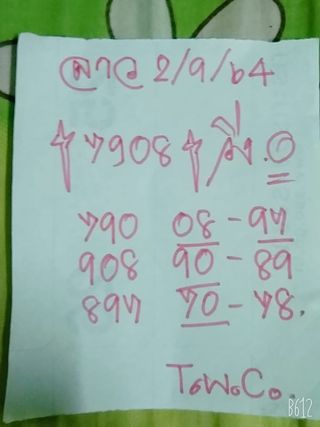 ลาว 2/9/64
7908 วิ่ง.0
790 08-97
908 90-89
897 70-78.
T.W.Co.
B612